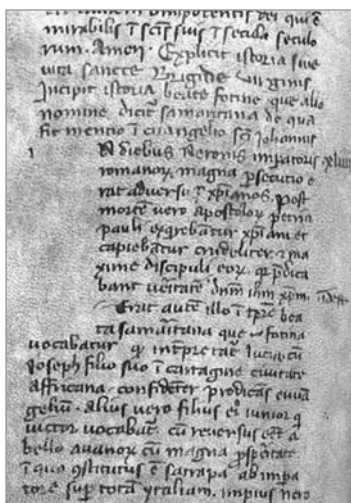 omnipotentis dei qui ē
mirabilis ī scīs suis ī secula seculo
rum. Amen. Explicit istoria siue
vita sancte Brigide virginis
Incipit istoria beate fotine que alio
nomine dicit᷑ samaritana de qua
fit mentio ī euangelio scī Johannis
diebus Neronis impatoris
romanoꝝ magna psecutio e
rat aduersꝰ xp̄ianos. post
mortē uero apostoloꝝ petri ⁊
pauli exqrebāt᷑ xp̄iani et
capiebāt᷑ crudeliter ⁊ ma
xime discipuli eoꝝ. qͥ pͥdica
bant ueritatē dn̄m ih̄m xp̄m.
Erat autē illo ī tp̄re bea
ta samaritana que fotina
uocabatur qͦ intpretat᷑ lucia cū
Joseph filio suo ī cartagine ciuitate
affricana. confidēter predicās euuā
geliū. alius uero filius ei iunior qͥ
uictor uocabat᷑. cū reuersus eēt a
bello auaroꝝ cū magna psperitate.
ī quo 9stitutus ē satrapa ab impa
tore sup totā ytaliam. impius nero